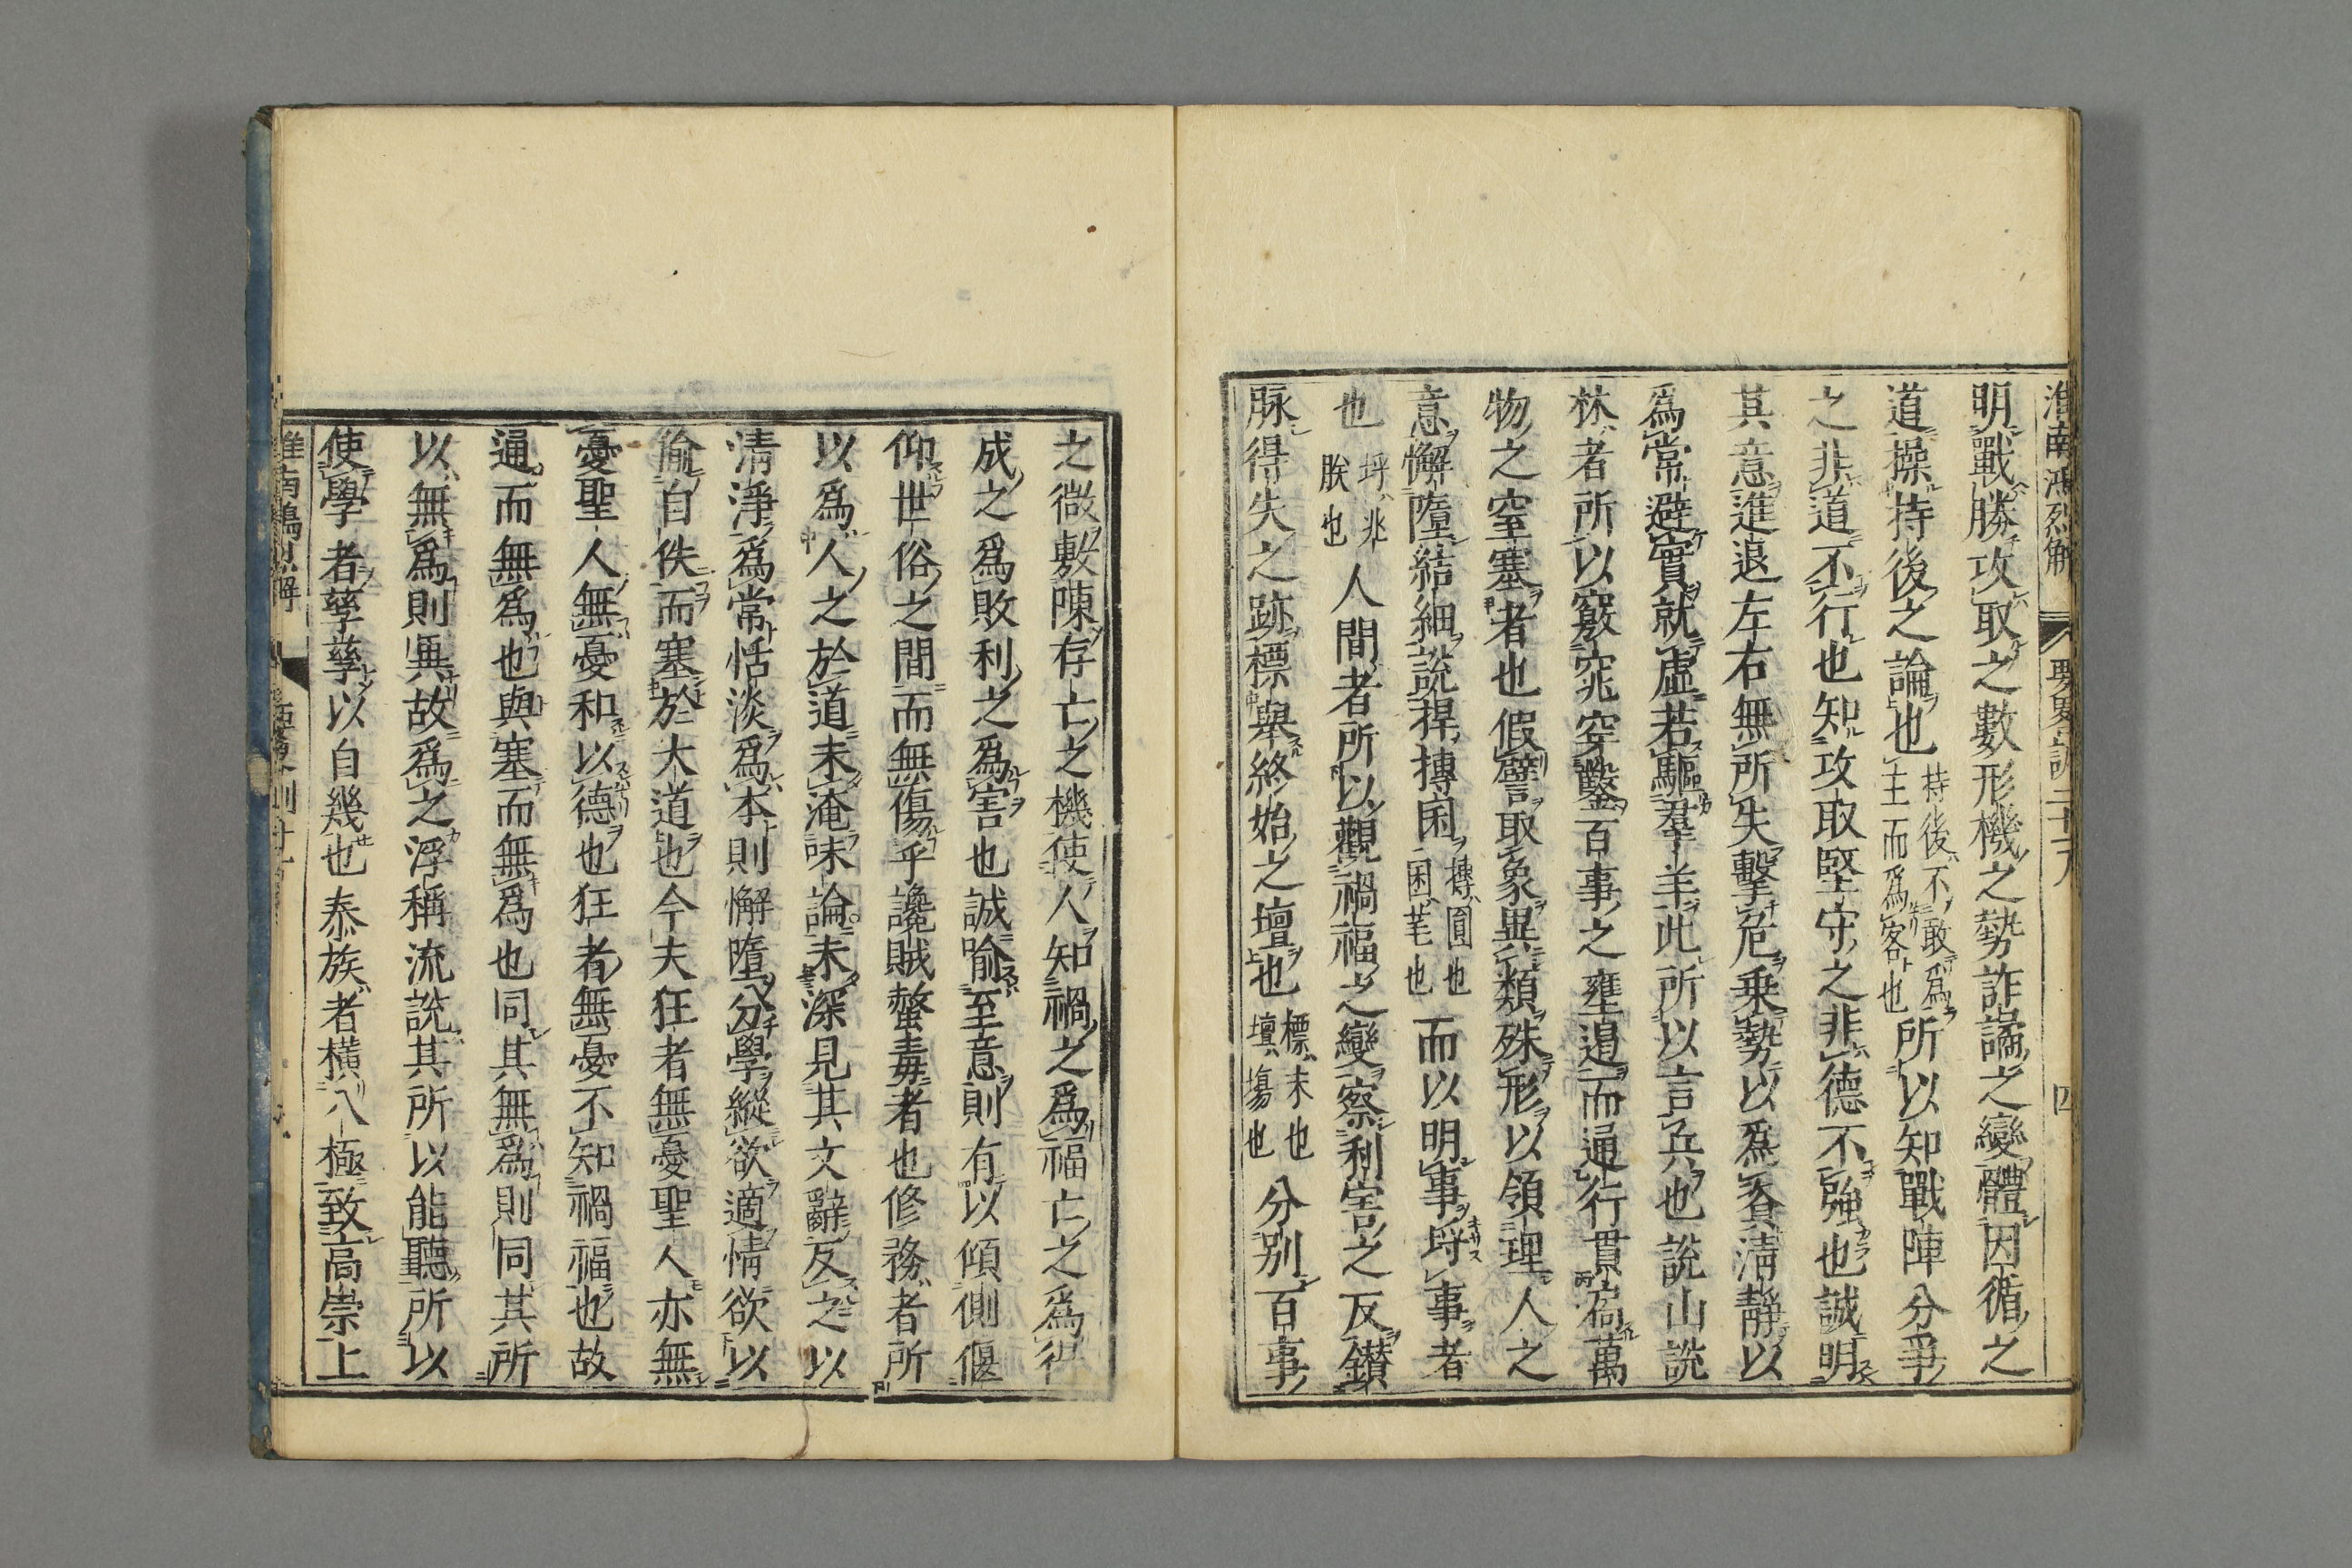 淮南鴻烈解 要略訓二十八 四
明戰勝攻取之數形機之勢詐譎之變體因循之
道操持後之論也持後不敢爲主而爲客也所以知戰陣分爭
之非道不行也知攻取堅守之非德不強也誠明
其意進退左右無所失擊危乗勢以爲資清靜以
爲常避實就虛若驅羣羊此所以言兵也說山說
林者所以竅窕穿鑿百事之壅遏而通行貫扃萬
物之窒塞者也假譬取象異類殊形以領理人之
意懈墮結細說捍摶困摶圓也困芼也而以明事埒事者
也埒兆朕也人間者所以觀禍福之變察利害之反鑚
脉得失之跡標舉終始之壇也標末也壇場也分别百事
之微敷陳存亡之機使人知禍之爲福亡之爲得
成之爲敗利之爲害也誠喻至意則有以傾側偃
仰世俗之間而無傷乎讒賊螫毒者也修務者所
以爲人之於道未淹味論未深見其文辭反之以
清淨爲常恬淡爲本則懈墮分學縱欲適情欲以
偷自佚而塞於大道也今夫狂者無憂聖人亦無
憂聖人無憂和以德也狂者無憂不知禍福也故
通而無爲也與塞而無爲也同其無爲則同其所
以無爲則異故爲之浮稱流說其所以能聽所以
使學者孳孳以自幾也泰族者橫八極致高崇上